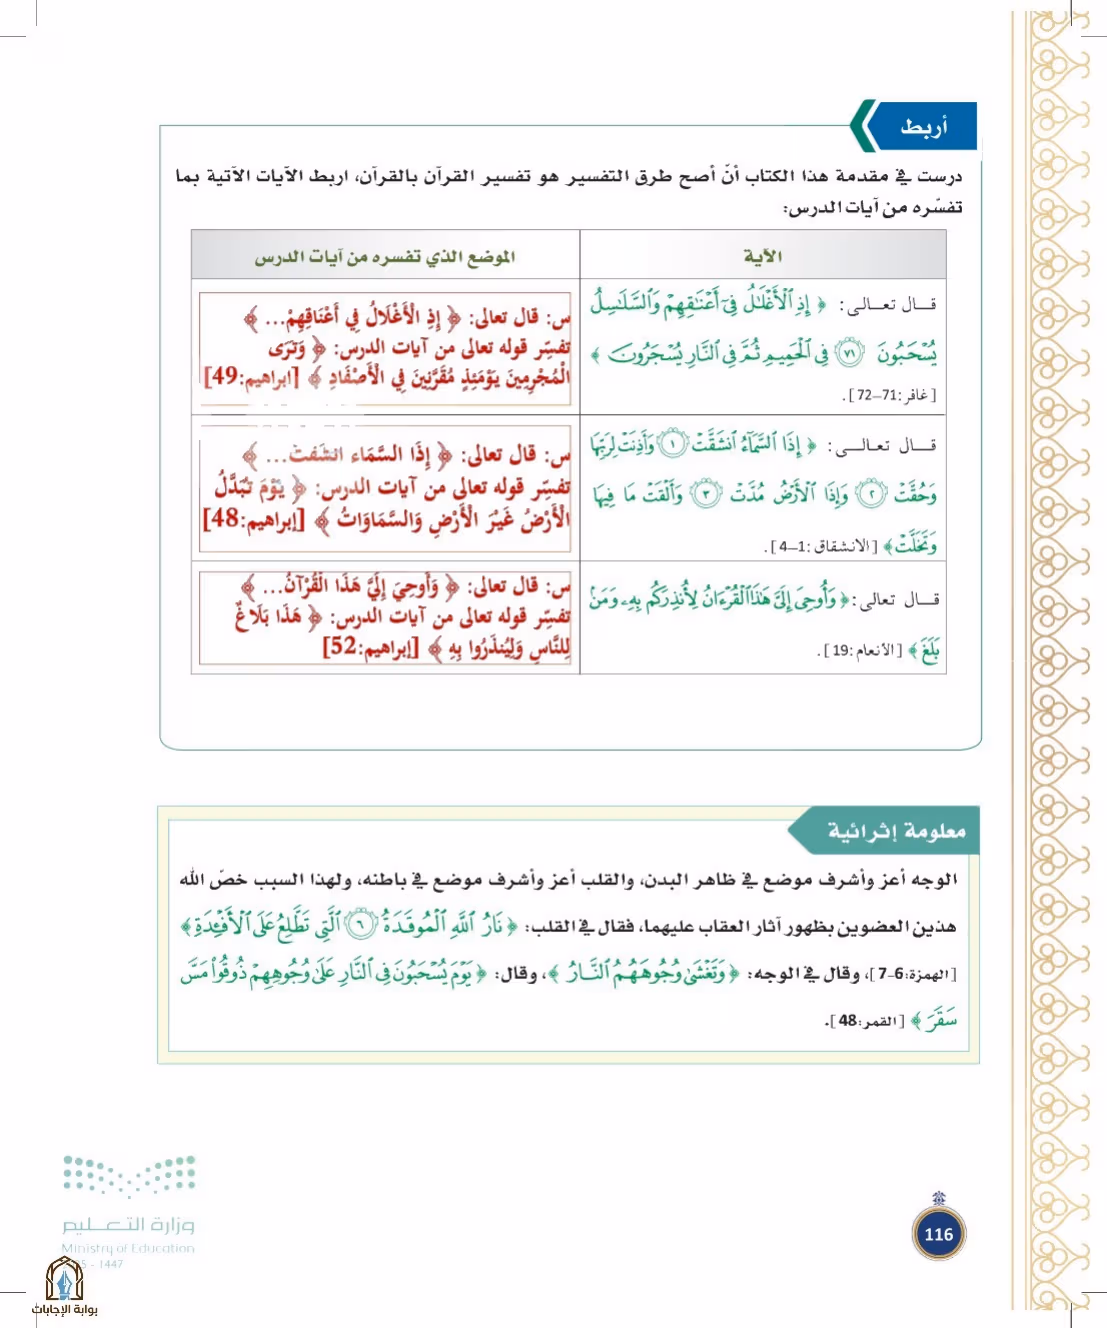 أربط
درست في مقدمة هذا الكتاب أنّ أصح طرق التفسير هو تفسير القرآن بالقرآن، اربط الآيات الآتية بما
تفسّره من آيات الدرس:
الآية
الموضع الذي تفسره من آيات الدرس
قـــال تعـــالى: ﴿ إِذِ ٱلْأَغْلَٰلُ فِىٓ أَعْنَٰقِهِمْ وَٱلسَّلَٰسِلُ
يُسْحَبُونَ ۝٧١ فِى ٱلْحَمِيمِ ثُمَّ فِى ٱلنَّارِ يُسْجَرُونَ ﴾
[غافر:71–72].
س: قال تعالى: ﴿ إِذِ الْأَغْلَالُ فِي أَعْنَاقِهِمْ... ﴾
تفسِّر قوله تعالى من آيات الدرس: ﴿ وَتَرَى
الْمُجْرِمِينَ يَوْمَئِذٍ مُقَرَّنِينَ فِي الْأَصْفَادِ ﴾ [ابراهيم:49]
قـــال تعـــالـــى: ﴿ إِذَا ٱلسَّمَآءُ ٱنشَقَّتْ ۝١ وَأَذِنَتْ لِرَبِّهَا
وَحُقَّتْ ۝٢ وَإِذَا ٱلْأَرْضُ مُدَّتْ ۝٣ وَأَلْقَتْ مَا فِيهَا
وَتَخَلَّتْ﴾ [الانشقاق:1–4].
س: قال تعالى: ﴿ إِذَا السَّمَاء انشقت... ﴾
تفسِّر قوله تعالى من آيات الدرس: ﴿ يَوْمَ تُبَدَّلُ
الْأَرْضُ غَيْرَ الْأَرْضِ وَالسَّمَاوَاتُ ﴾ [إبراهيم:48]
قـــال تعالى:﴿ وَأُوحِىَ إِلَىَّ هَٰذَا ٱلْقُرْءَانُ لِأُنذِرَكُم بِهِۦ وَمَنۢ
بَلَغَ﴾ [الأنعام:19].
س: قال تعالى: ﴿ وَأُوحِيَ إِلَيَّ هَذَا الْقُرْآنُ... ﴾
تفسِّر قوله تعالى من آيات الدرس: ﴿ هَذَا بَلَاغٌ
لِلنَّاسِ وَلِيُنذَرُوا بِهِ ﴾ [إبراهيم:52]
معلومة إثرائية
الوجه أعز وأشرف موضع في ظاهر البدن، والقلب أعز وأشرف موضع في باطنه، ولهذا السبب خصّ الله
هذين العضوين بظهور آثار العقاب عليهما، فقال في القلب: ﴿ نَارُ ٱللَّهِ ٱلْمُوقَدَةُ ۝٦ ٱلَّتِى تَطَّلِعُ عَلَى ٱلْأَفْـِٔدَةِ﴾
[الهمزة:6–7]، وقال في الوجه: ﴿وَتَغْشَىٰ وُجُوهَهُمُ ٱلنَّارُ﴾، وقال: ﴿يَوْمَ يُسْحَبُونَ فِى ٱلنَّارِ عَلَىٰ وُجُوهِهِمْ ذُوقُوا۟ مَسَّ
سَقَرَ﴾ [القمر:48].
وزارة التعـــليم
Ministry of Education
- 1447
116
بوابة الإجابات